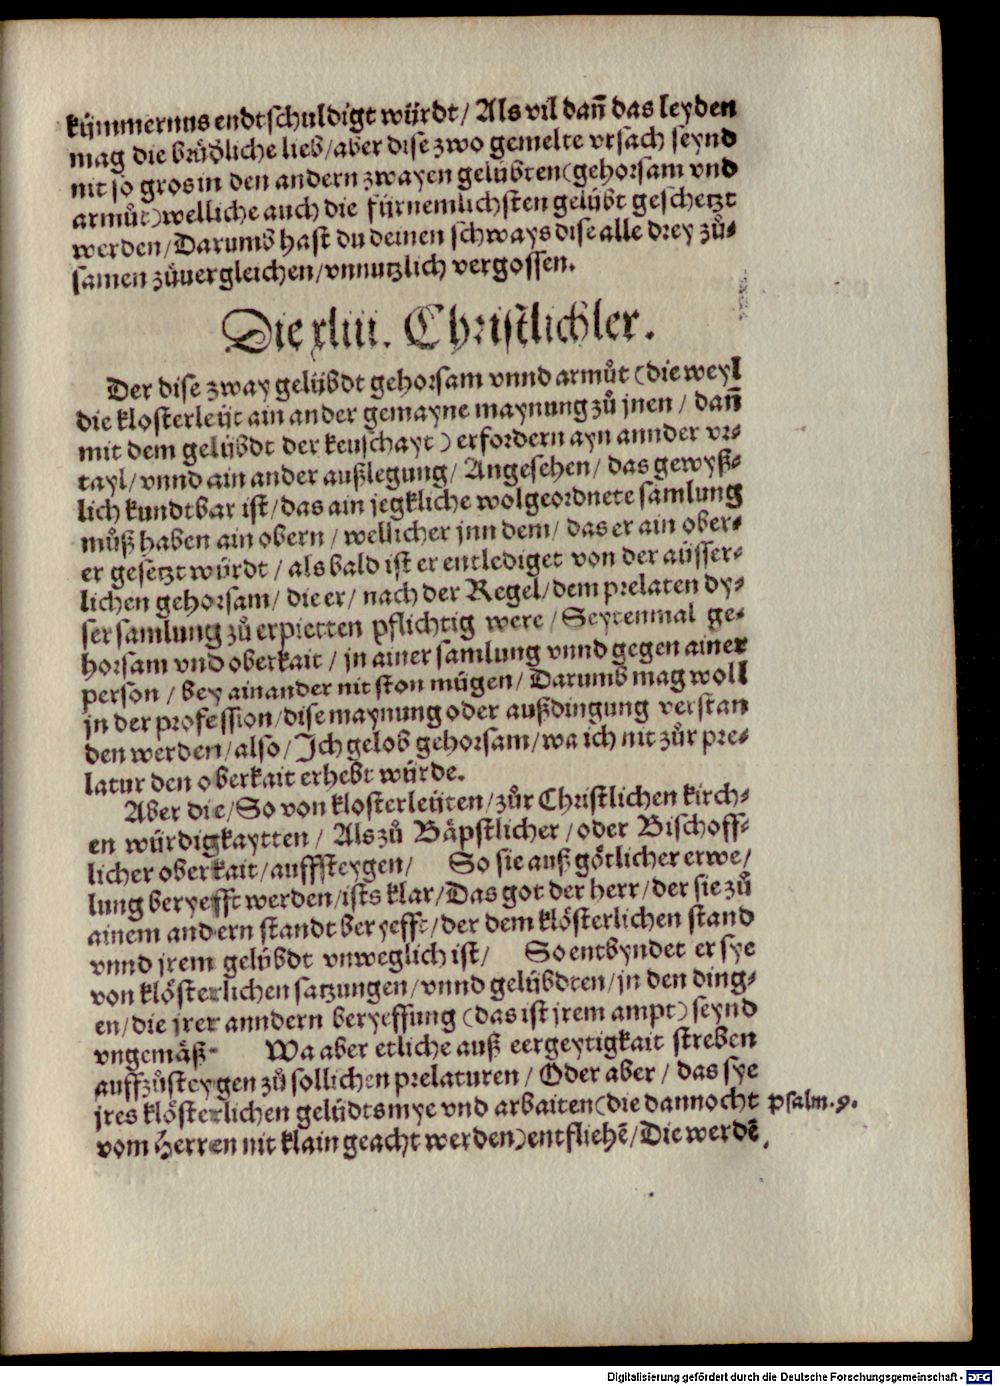 kümmernus endtschuldigt würdt/ Als vil dañ das leyden
mag die brüdliche lieb/aber dise zwo gemelte vrsach seynd
nit so gros in den andern zwayen gelübten(gehorsam vnd
armůt)welliche auch die fürnemlichsten gelübt geschetzt
werden/Darumb hast du deinen schways dise alle drey zů-
samen zůuergleichen/vnnutzlich vergossen.
Die xliii. Christlichler.
Der dise zway gelübdt gehorsam vnnd armůt (die weyl
die klosterleüt ain ander gemayne maynung zů jnen / dañ
mit dem gelübdt der keuschayt) erfordern ayn annder vr-
tayl/vnnd ain ander außlegung/ Angesehen/ das gewyß-
lich kundtbar ist/das ain jegkliche wolgeordnete samlung
můß haben ain obern/ wellicher jnn dem/ das er ain ober-
er gesetzt würdt/ als bald ist er entlediget von der aüsser-
lichen gehorsam/ die er/ nach der Regel/dem prelaten dy-
ser samlung zů erpietten pflichtig were/Seytenmal ge-
horsam vnd oberkait/ jn ainer samlung vnnd gegen ainer
person/ bey ainander nit ston mügen/ Darumb mag woll
jn der profession/dise maynung oder außdingung verstan
den werden/also/Ich gelob gehorsam/wa ich nit zůr pre-
latur den oberkait erhebt würde.
Aber die/So von klosterleüten/zůr Christlichen kirch-
en würdigkaytten/ Als zů Bäpstlicher/oder Bischoff-
licher oberkait/auffsteygen/ So sie auß götlicher erwe/
lung beryefft werden/ists klar/Das got der herr/der sie zů
ainem andern standt beryefft/der dem klösterlichen stand
vnnd jrem gelübdt vnweglich ist/ So entbyndet er sye
von klösterlichen satzungen/vnnd gelübdten/jn den ding-
en/die jrer anndern beryeffung (das ist jrem ampt) seynd
vngemäß- Wa aber etliche auß eergeytigkait streben
auffzůsteygen zů sollichen prelaturen/ Oder aber/ das sye
jres klösterlichen gelüdts mye vnd arbaiten(die dannocht psalm.9.
vom Herren nit klain geacht werden)entfliehē/Die werdē
Digitalisierung gefördert durch die Deutsche Forschungsgemeinschaft - DFG